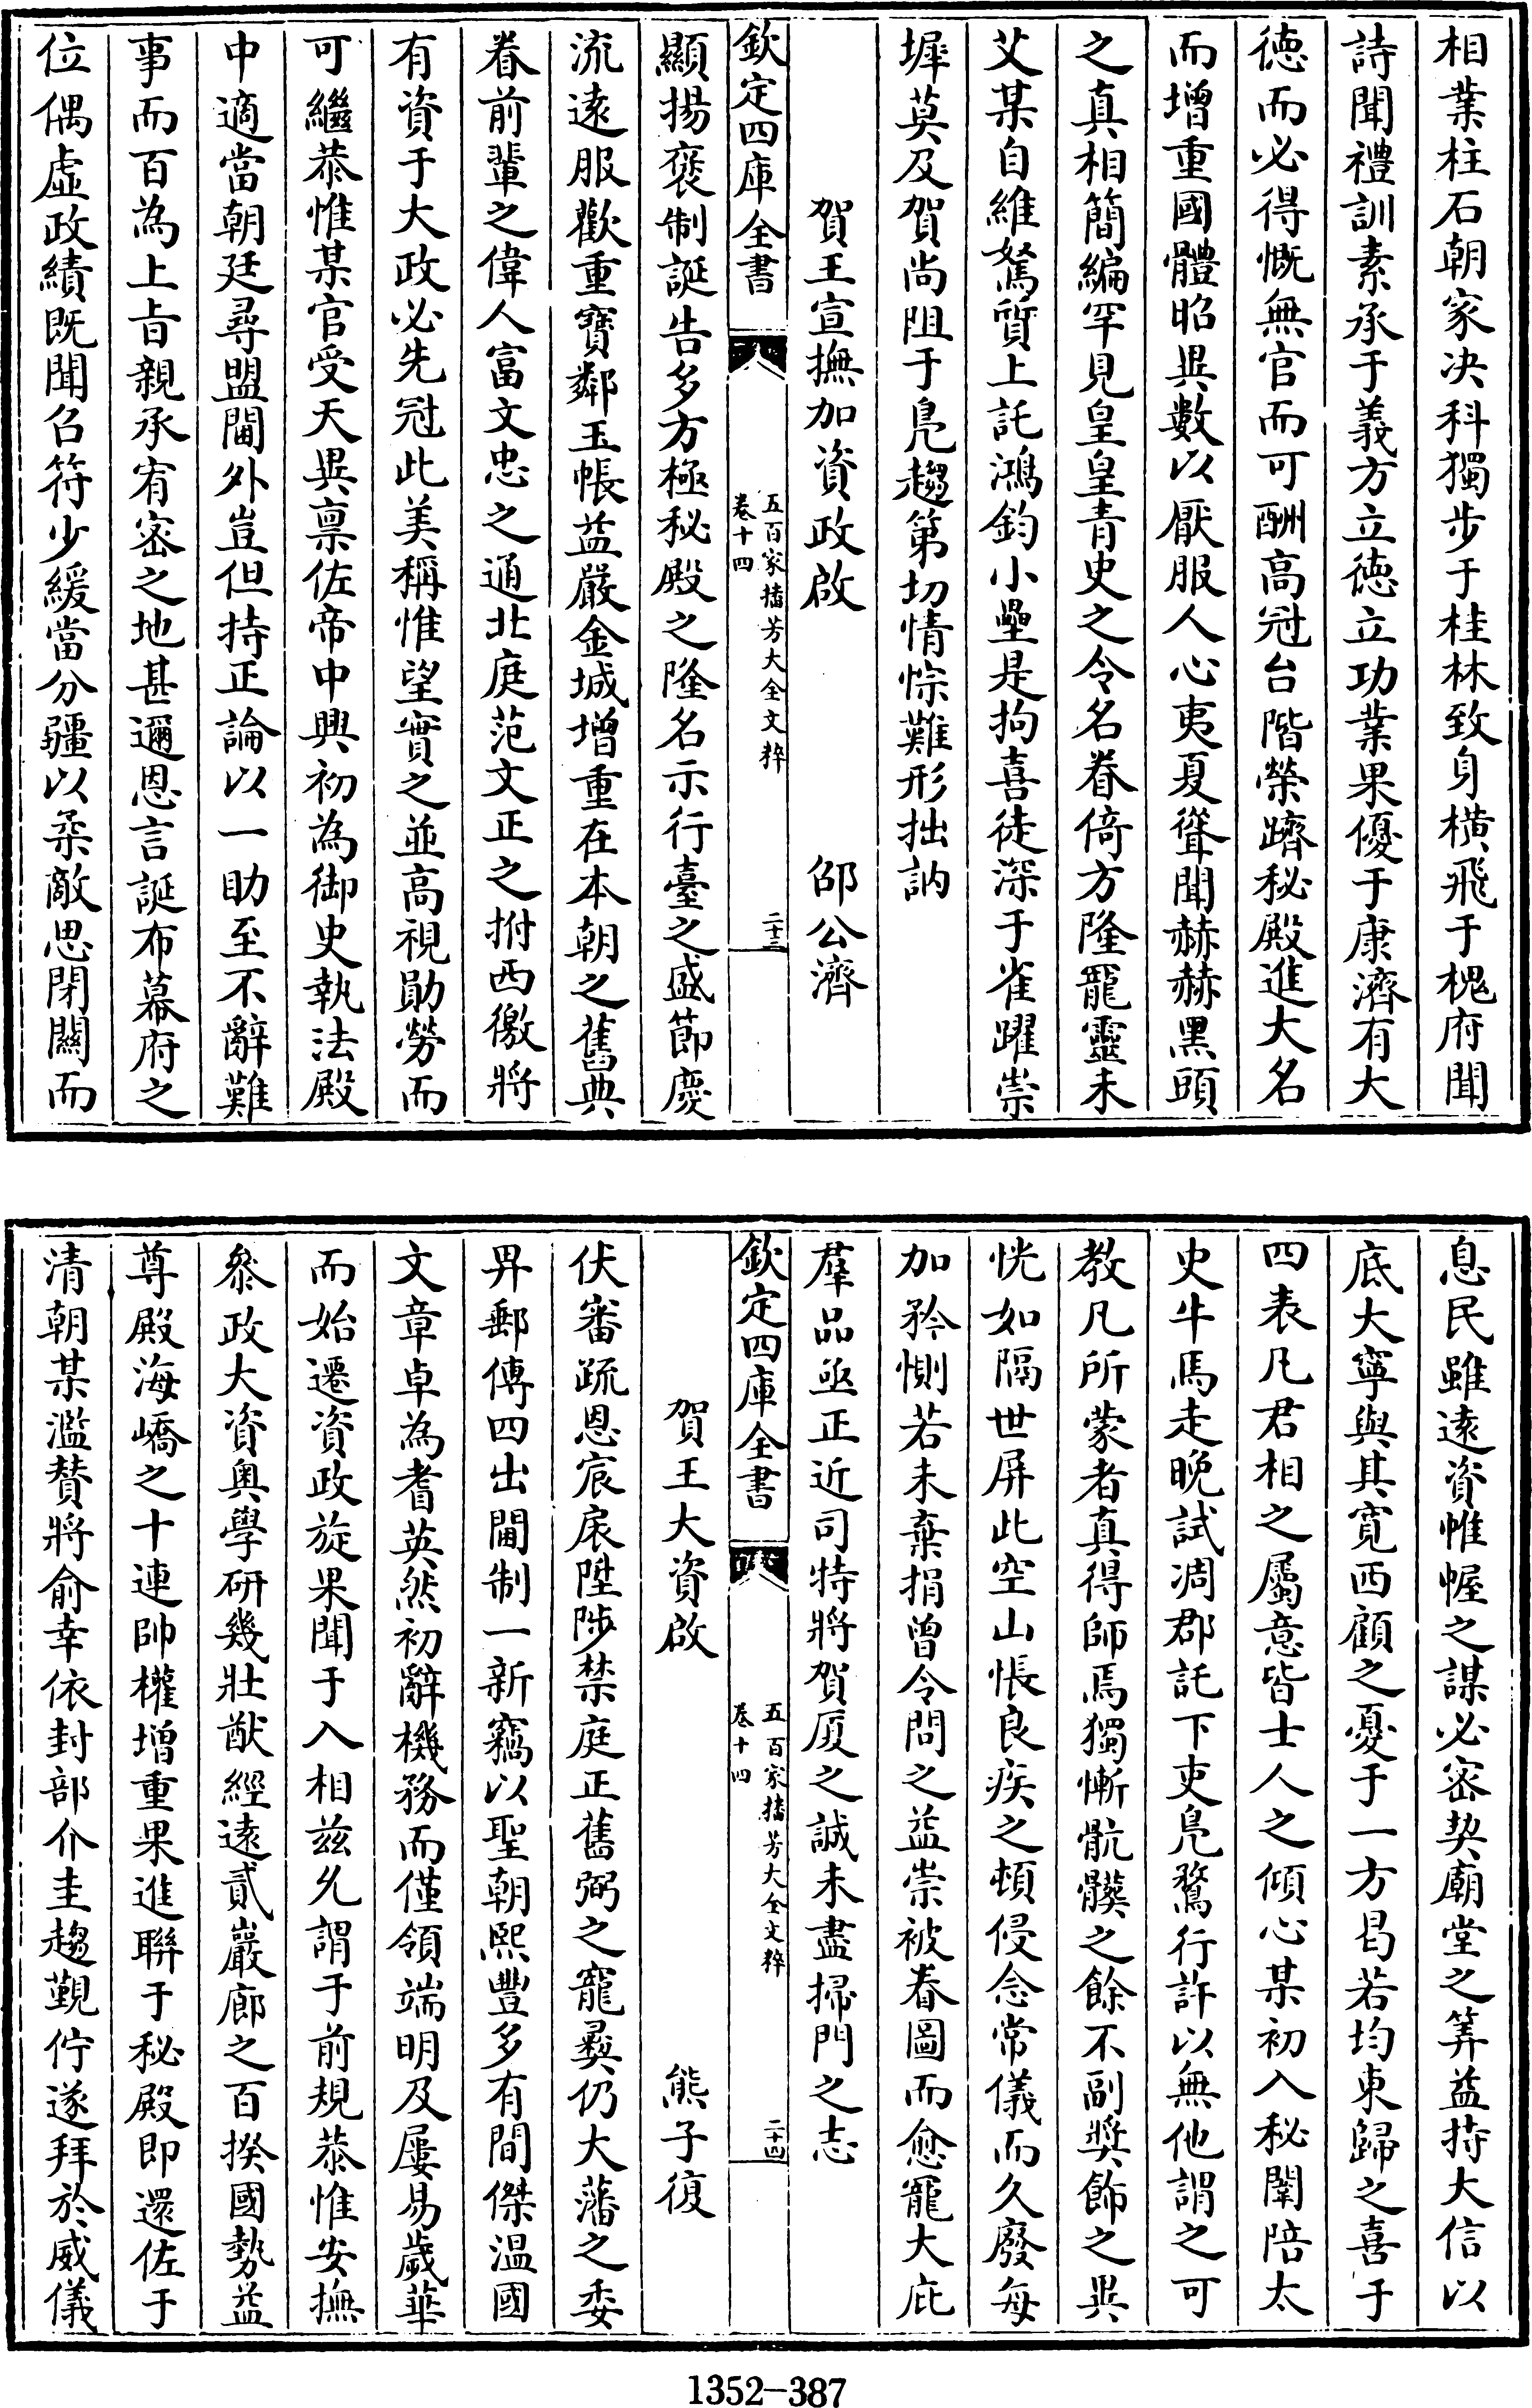 相業柱石朝家决科獨步于桂林致身橫飛于槐府聞
詩聞禮訓素承于義方立徳立功業果優于康濟有大
徳而必得慨無官而可酬高冠台階榮躋秘殿進大名
而增重國體昭異數以厭服人心夷夏聳聞赫赫黑頭
之真相簡編罕見皇皇青史之令名眷倚方隆寵靈未
艾某自維駑質上託鴻鈞小壘是拘喜徒深于雀躍崇
墀莫及賀尚阻于鳧趨第切情悰難形拙訥
賀王宣撫加資政啟 邵公濟
欽定四庫全書
五百家播芳大全文粹
卷十四
二十三
顯揚褒制誕告多方極秘殿之隆名示行臺之盛節慶
流遠服歡重寳鄰玉帳益嚴金城增重在本朝之舊典
眷前輩之偉人富文忠之通北庭范文正之拊西徼將
有資于大政必先冠此美稱惟望實之並高視勛勞而
可繼恭惟某官受天異禀佐帝中興初為御史執法殿
中適當朝廷尋盟閫外豈但持正論以一助至不辭難
事而百為上㫖親承宥宻之地甚邇恩言誕布幕府之
位偶虛政績既聞召符少緩當分疆以柔敵思閉關而
息民雖遠資惟幄之謀必宻契廟堂之筭益持大信以
底大寧與其寛西顧之憂于一方曷若均東歸之喜于
四表凡君相之屬意皆士人之傾心某初入秘闈陪太
史牛馬走晚試凋郡託下吏鳧鶩行許以無他謂之可
教凡所蒙者真得師焉獨慚骯髒之餘不副奬飾之異
恍如隔世屏此空山悵良疾之頓侵念常儀而久廢每
加矜惻若未棄捐曾令問之益崇被眷圖而愈寵大庇
羣品亟正近司特將賀厦之誠未盡掃門之志
欽定四庫全書
五百家播芳大全文粹
卷十四
二十四
賀王大資啟 熊子復
伏審疏恩宸扆陞陟禁庭正舊弼之寵彛仍大藩之委
畀郵傳四出閫制一新竊以聖朝熙豐多有間傑溫國
文章卓為耆英然初辭機務而僅領端明及屢易歲華
而始遷資政旋果聞于入相兹允謂于前規恭惟安撫
叅政大資奥學研幾壯猷經遠貳巖廊之百揆國勢益
尊殿海嶠之十連帥權增重果進聯于秘殿即還佐于
清朝某濫賛將俞幸依封部介圭趨覲佇遂拜於威儀
1352-387